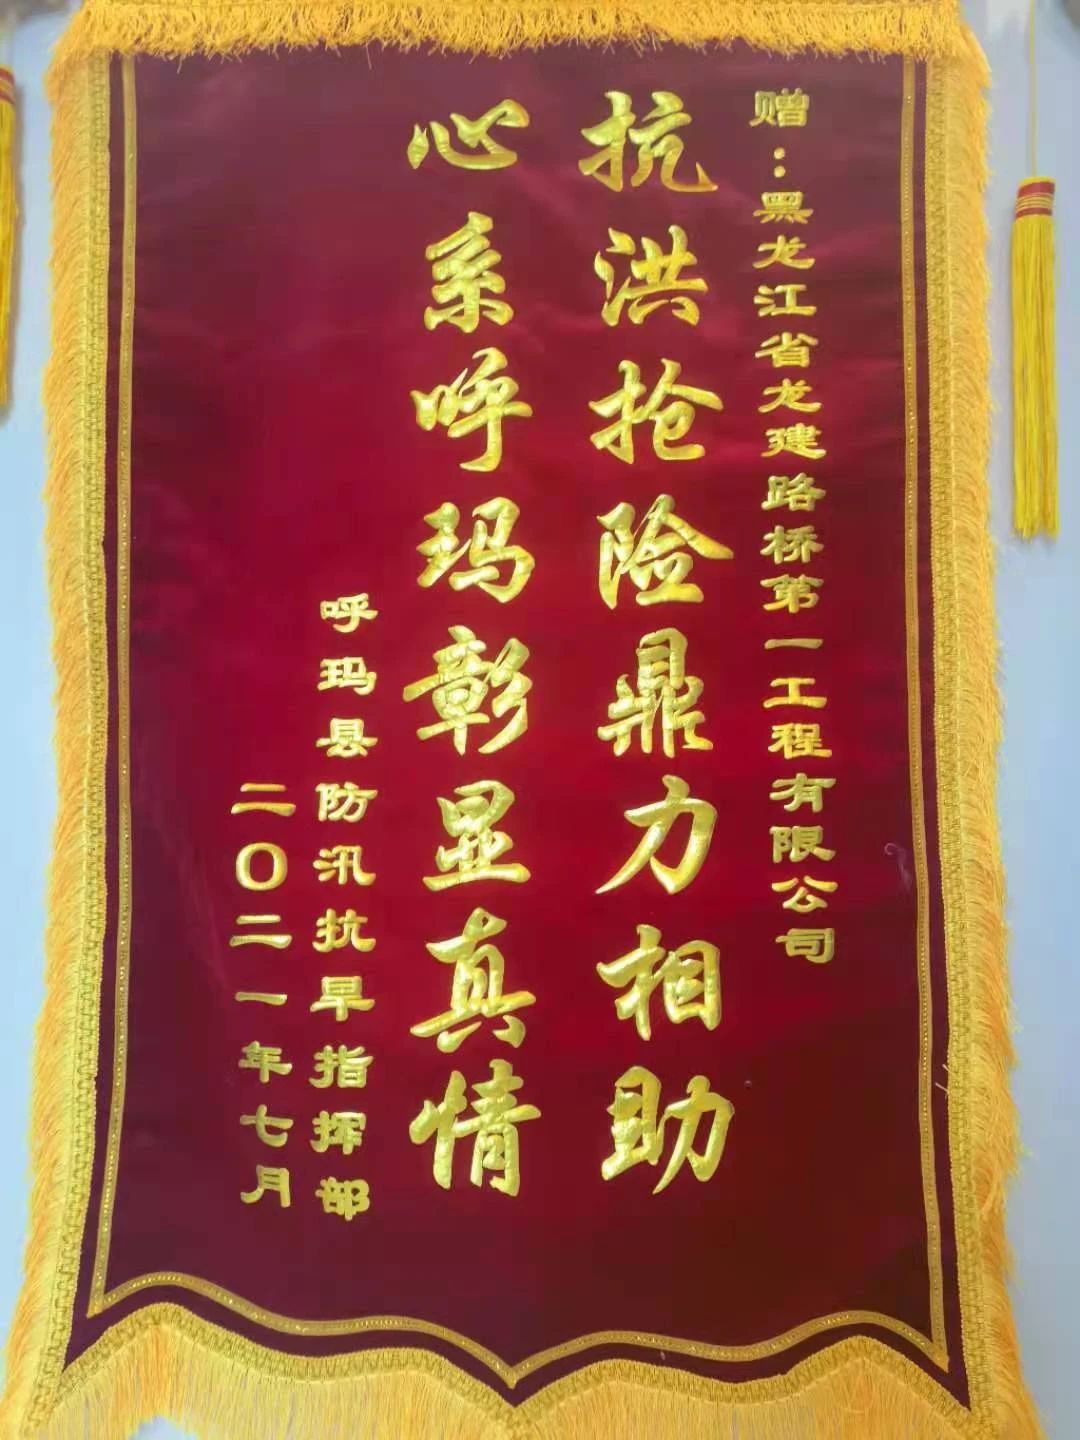 赠：黑龙江省龙建路桥第一工程有限公司
抗洪抢险鼎力相助
心系呼玛彰显真情
呼玛县防汛抗旱指挥部
二〇二一年七月